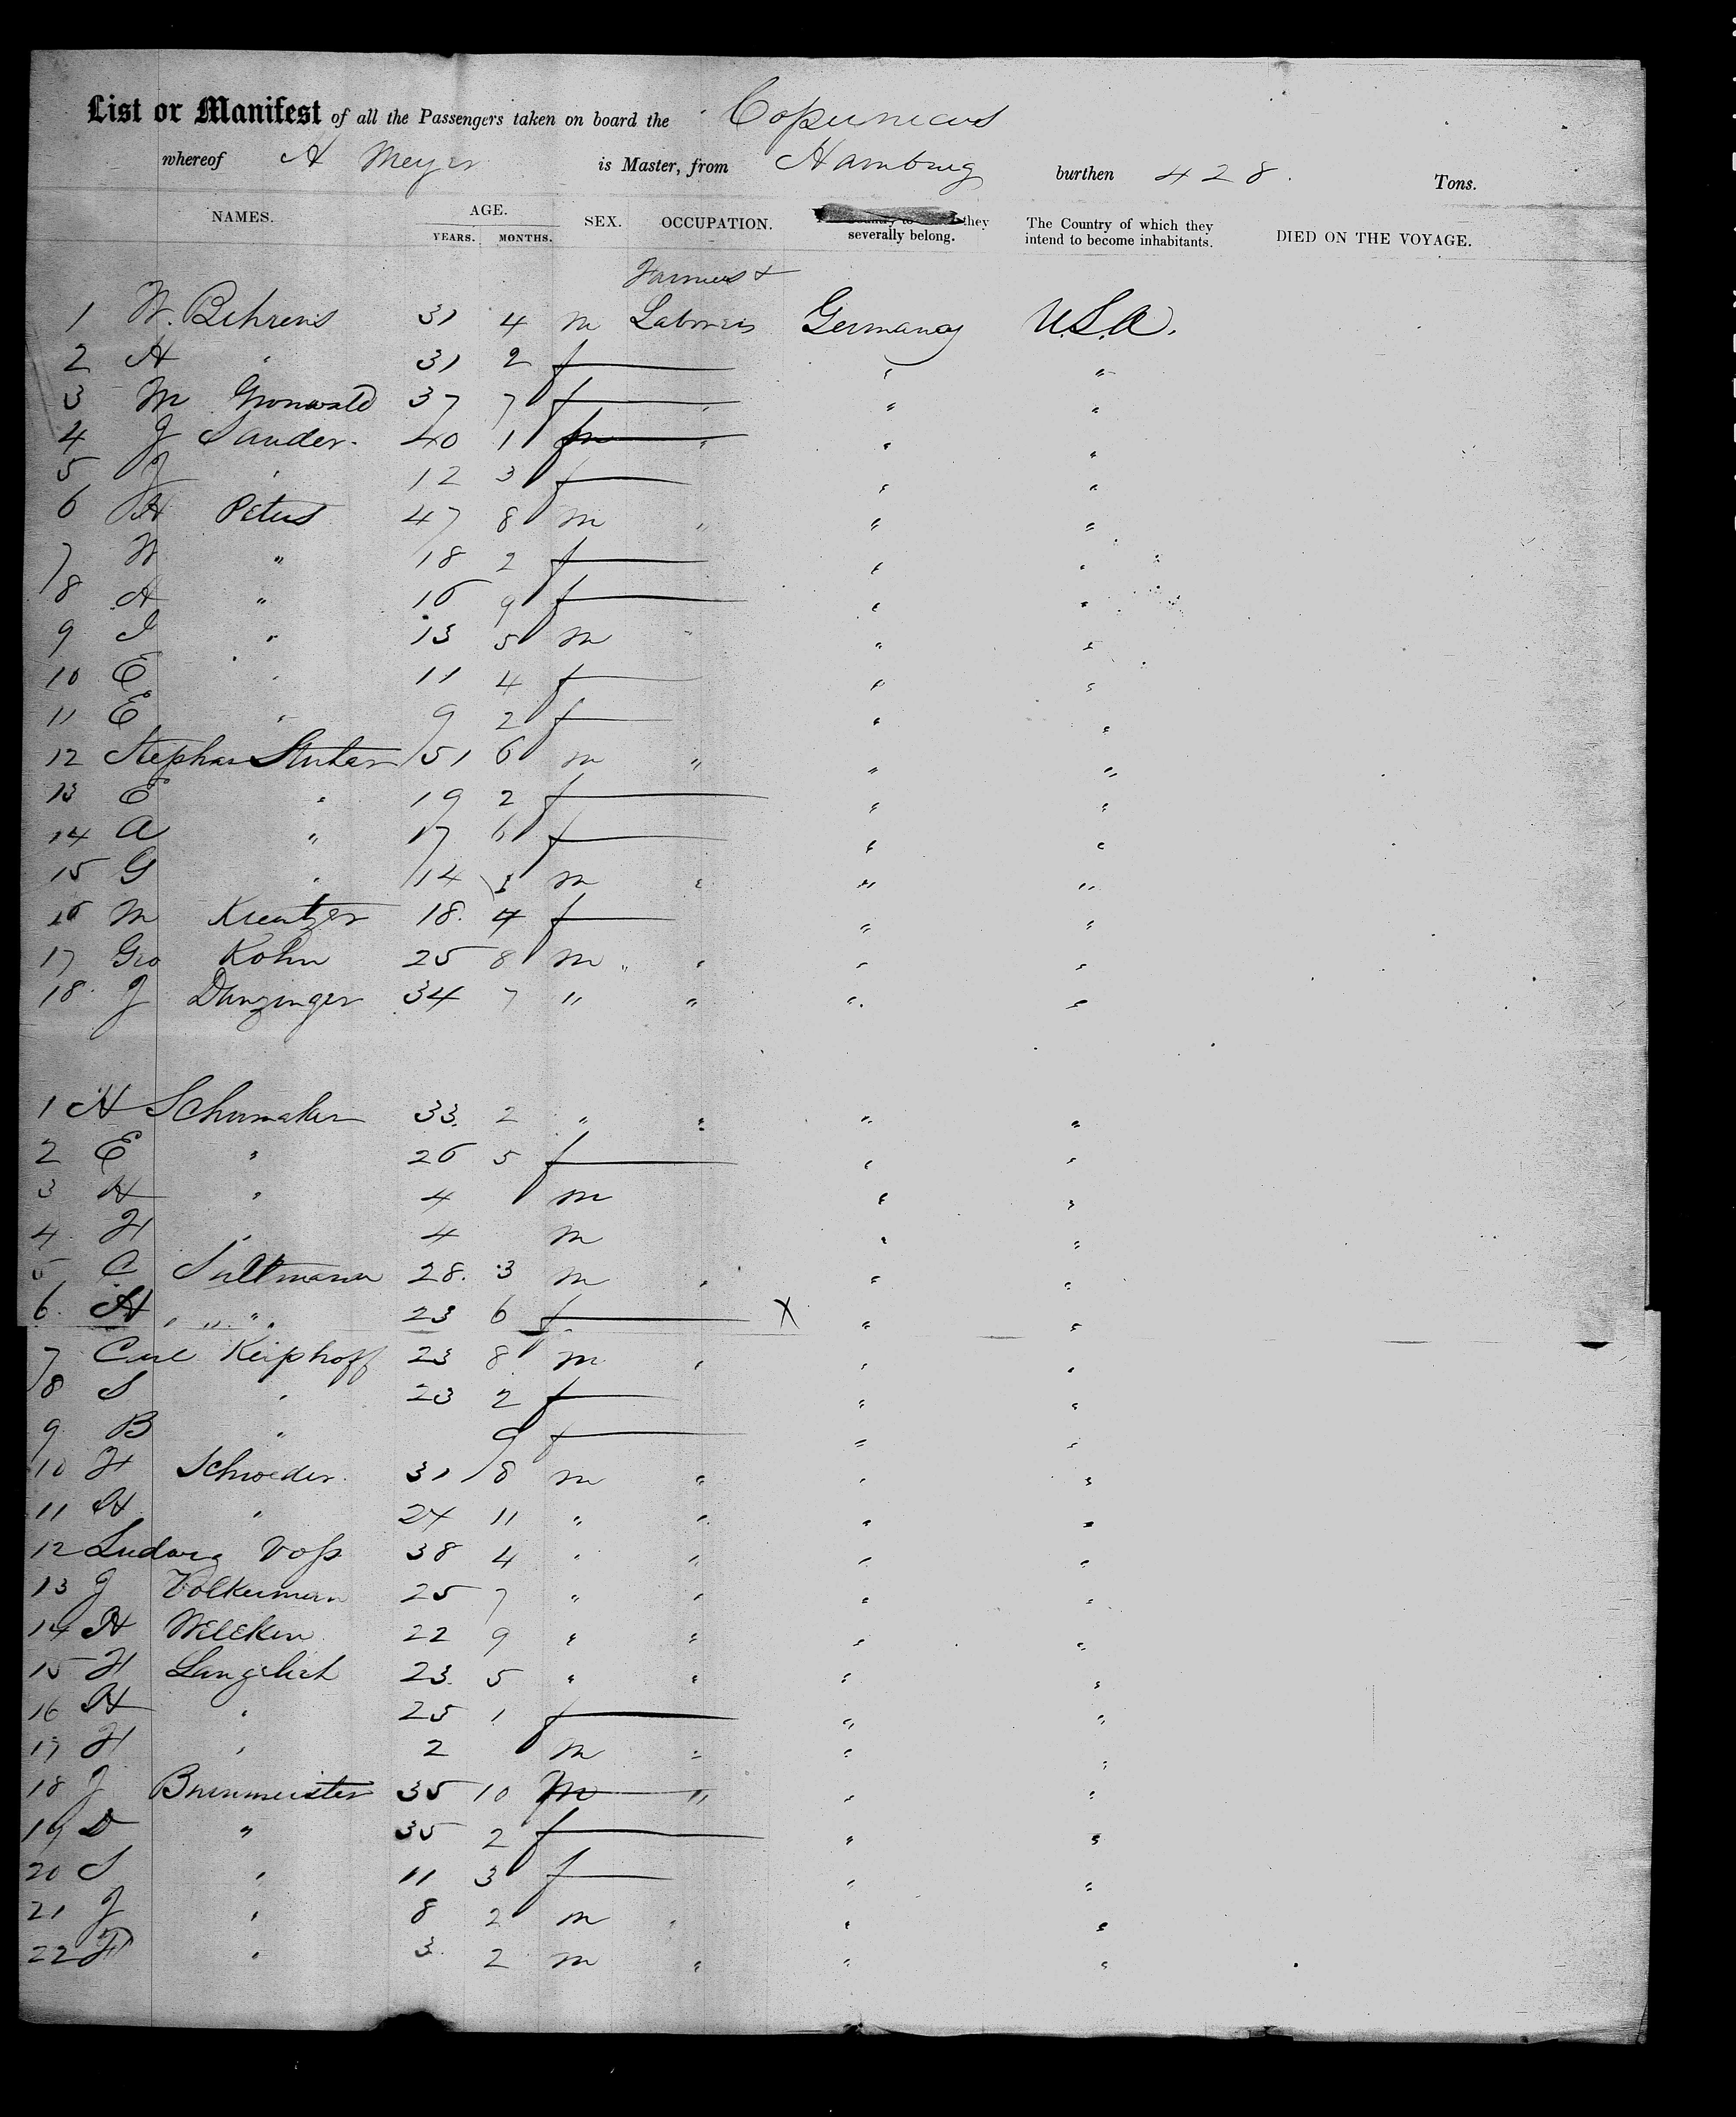 List or Manifest of all the Passengers taken on board the Copernicus
whereof A Meyer is Master, from Hamburg burthen 428. Tons.
NAMES. AGE. YEARS. MONTHS. SEX. OCCUPATION. they severally belong. The Country of which they intend to become inhabitants. DIED ON THE VOYAGE.
Farmers &
1 W. Behrens 31 4 m Laborers Germany U.S.A.
2 A " 31 2 f " "
3 M Gronwald 37 7 f " " "
4 J Sander 40 1 m " " "
5 J " 12 3 f " "
6 H Peters 47 8 m " " "
7 W " 18 2 f " "
8 A " 16 9 f " "
9 I " 13 5 m " " "
10 E " 11 4 f " "
11 E " 9 2 f " "
12 Stephan 51 6 m " " "
13 E " 19 2 f " "
14 A " 17 6 f " "
15 G " 14 m " " "
16 M Kreutzer 18. 4 f " "
17 Geo Kohn 25 8 m " " "
18 J Danzinger 34 7 " " " "
1 H Schumaker 33. 2 " " " "
2 E " 26 5 f " "
3 H " 4 m " "
4 H " 4 m " "
5 C Sultmann 28. 3 m " " "
6. A " 23 6 f X " "
7 Carl Keiphoff 23 8 m " " "
8 S " 23 2 f " "
9 B " 9 f " "
10 H Schroeder 31 8 m " " "
11 H " 24 11 " " " "
12 Ludwig Voß 38 4 " " " "
13 J Volkerman 25 7 " " " "
14 H Welcken 22 9 " " " "
15 H 23. 5 " " " "
16 H " 25 1 f " "
17 H " 2 m " " "
18 J Burmeister 35 10 m " " "
19 D " 35 2 f " "
20 S " 11 3 f " "
21 J " 8 2 m " " "
22 F " 3 2 m " " "